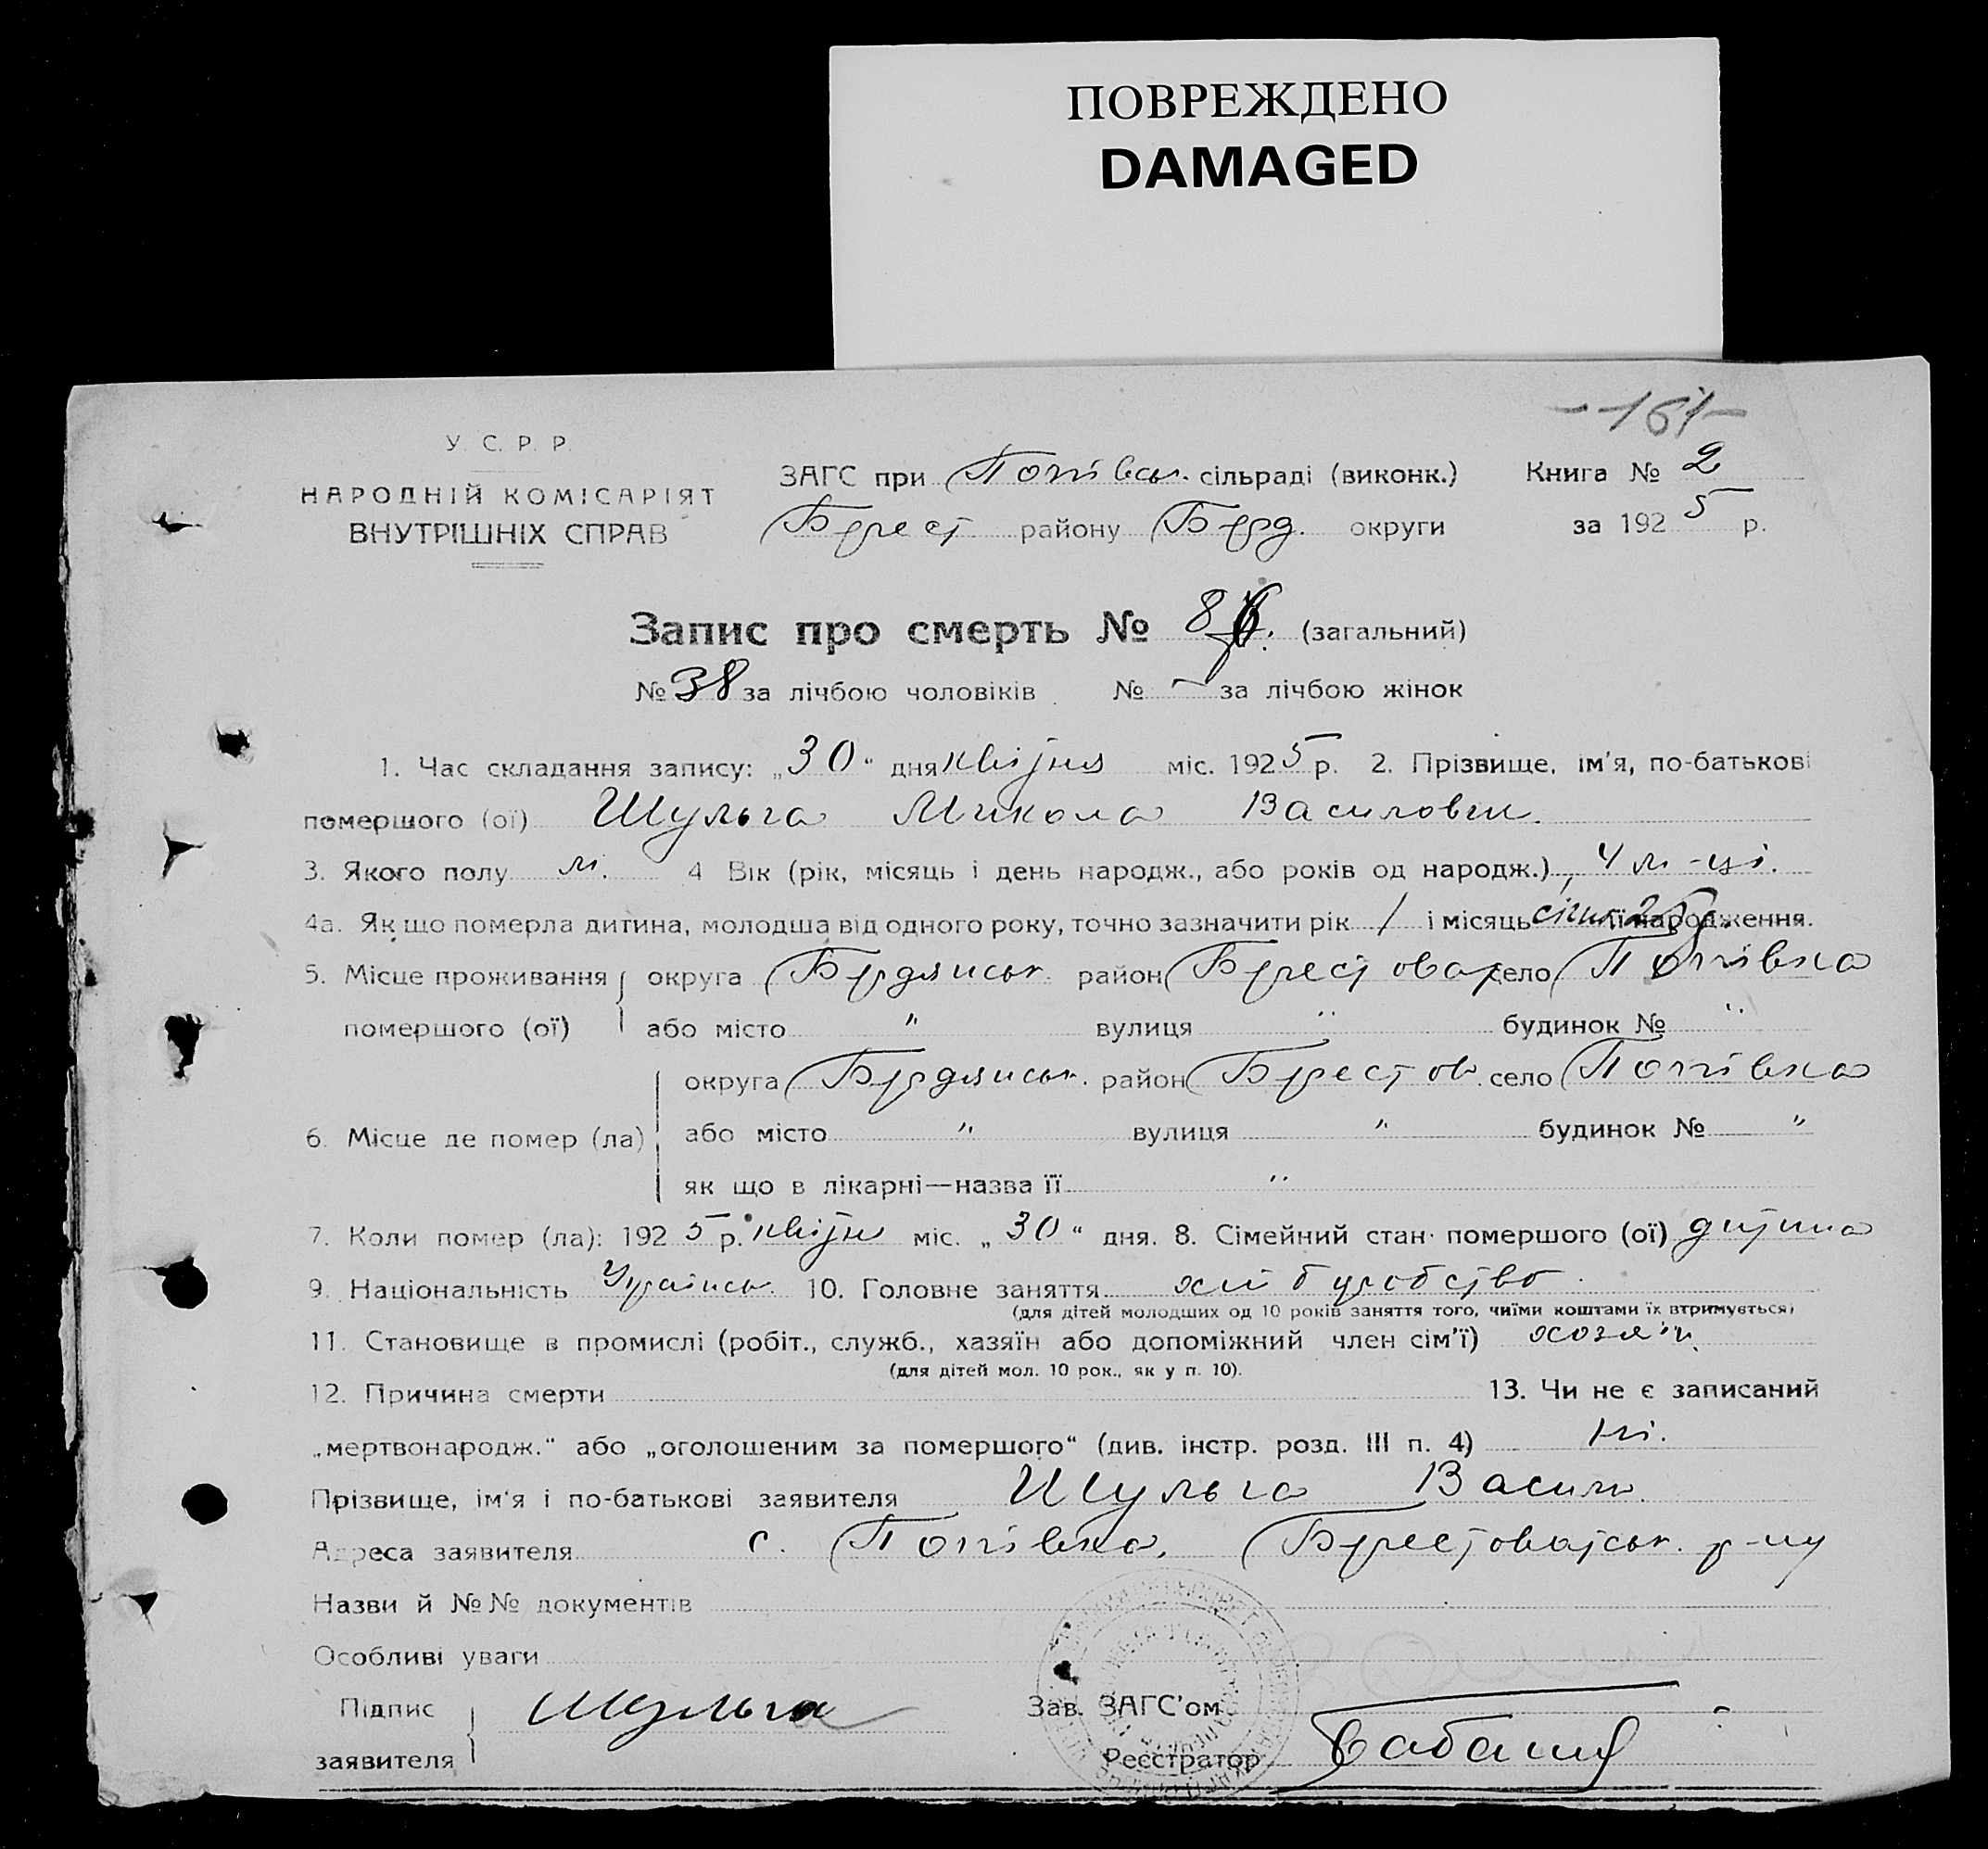 ПОВРЕЖДЕНО
DAMAGED
У. С. Р. Р.
НАРОДНІЙ КОМІСАРІЯТ
ВНУТРІШНІХ СПРАВ
ЗАГС при Попівськ. сільраді (виконк.) Книга № 2
Брест. району Берд. округи за 1925 р.
Запис про смерть № (загальний)
№ 38 за лічбою чоловіків № – за лічбою жінок
1. Час складання запису: „30“ дня квітня міс. 1925 р. 2. Прізвище, ім'я, по-батькові
помершого (ої) Шульга Микола Василович.
3. Якого полу м. 4 Вік (рік, місяць і день народж., або років од народж.) 4 м-ці.
4а. Як що померла дитина, молодша від одного року, точно зазначити рік 1 і місяць її народження.
5. Місце проживання округа Бердянськ. район Брестоват село Попівка
помершого (ої) або місто " вулиця " будинок № "
округа Бердянськ. район Брестов. село Попівка
6. Місце де помер (ла) або місто " вулиця " будинок № "
як що в лікарні—назва її "
7. Коли помер (ла): 1925 р. квітн міс. „30“ дня. 8. Сімейний стан помершого (ої) дитина
9. Національність Українськ. 10. Головне заняття хліборобство.
(для дітей молодших од 10 років заняття того, чиїми коштами їх втримується)
11. Становище в промислі (робіт., служб., хазяїн або допоміжний член сім'ї) хозяїн.
(для дітей мол. 10 рок., як у п. 10).
12. Причина смерти 13. Чи не є записаний
„мертвонародж.“ або „оголошеним за помершого“ (див. інстр. розд. III п. 4) ні.
Прізвище, ім'я і по-батькові заявителя Шульга Васил
Адреса заявителя с. Попівка, Брестоватськ. р-ну
Назви й №№ документів
Особливі уваги
Підпис заявителя Шульга
Зав. ЗАГС'ом
Реєстратор